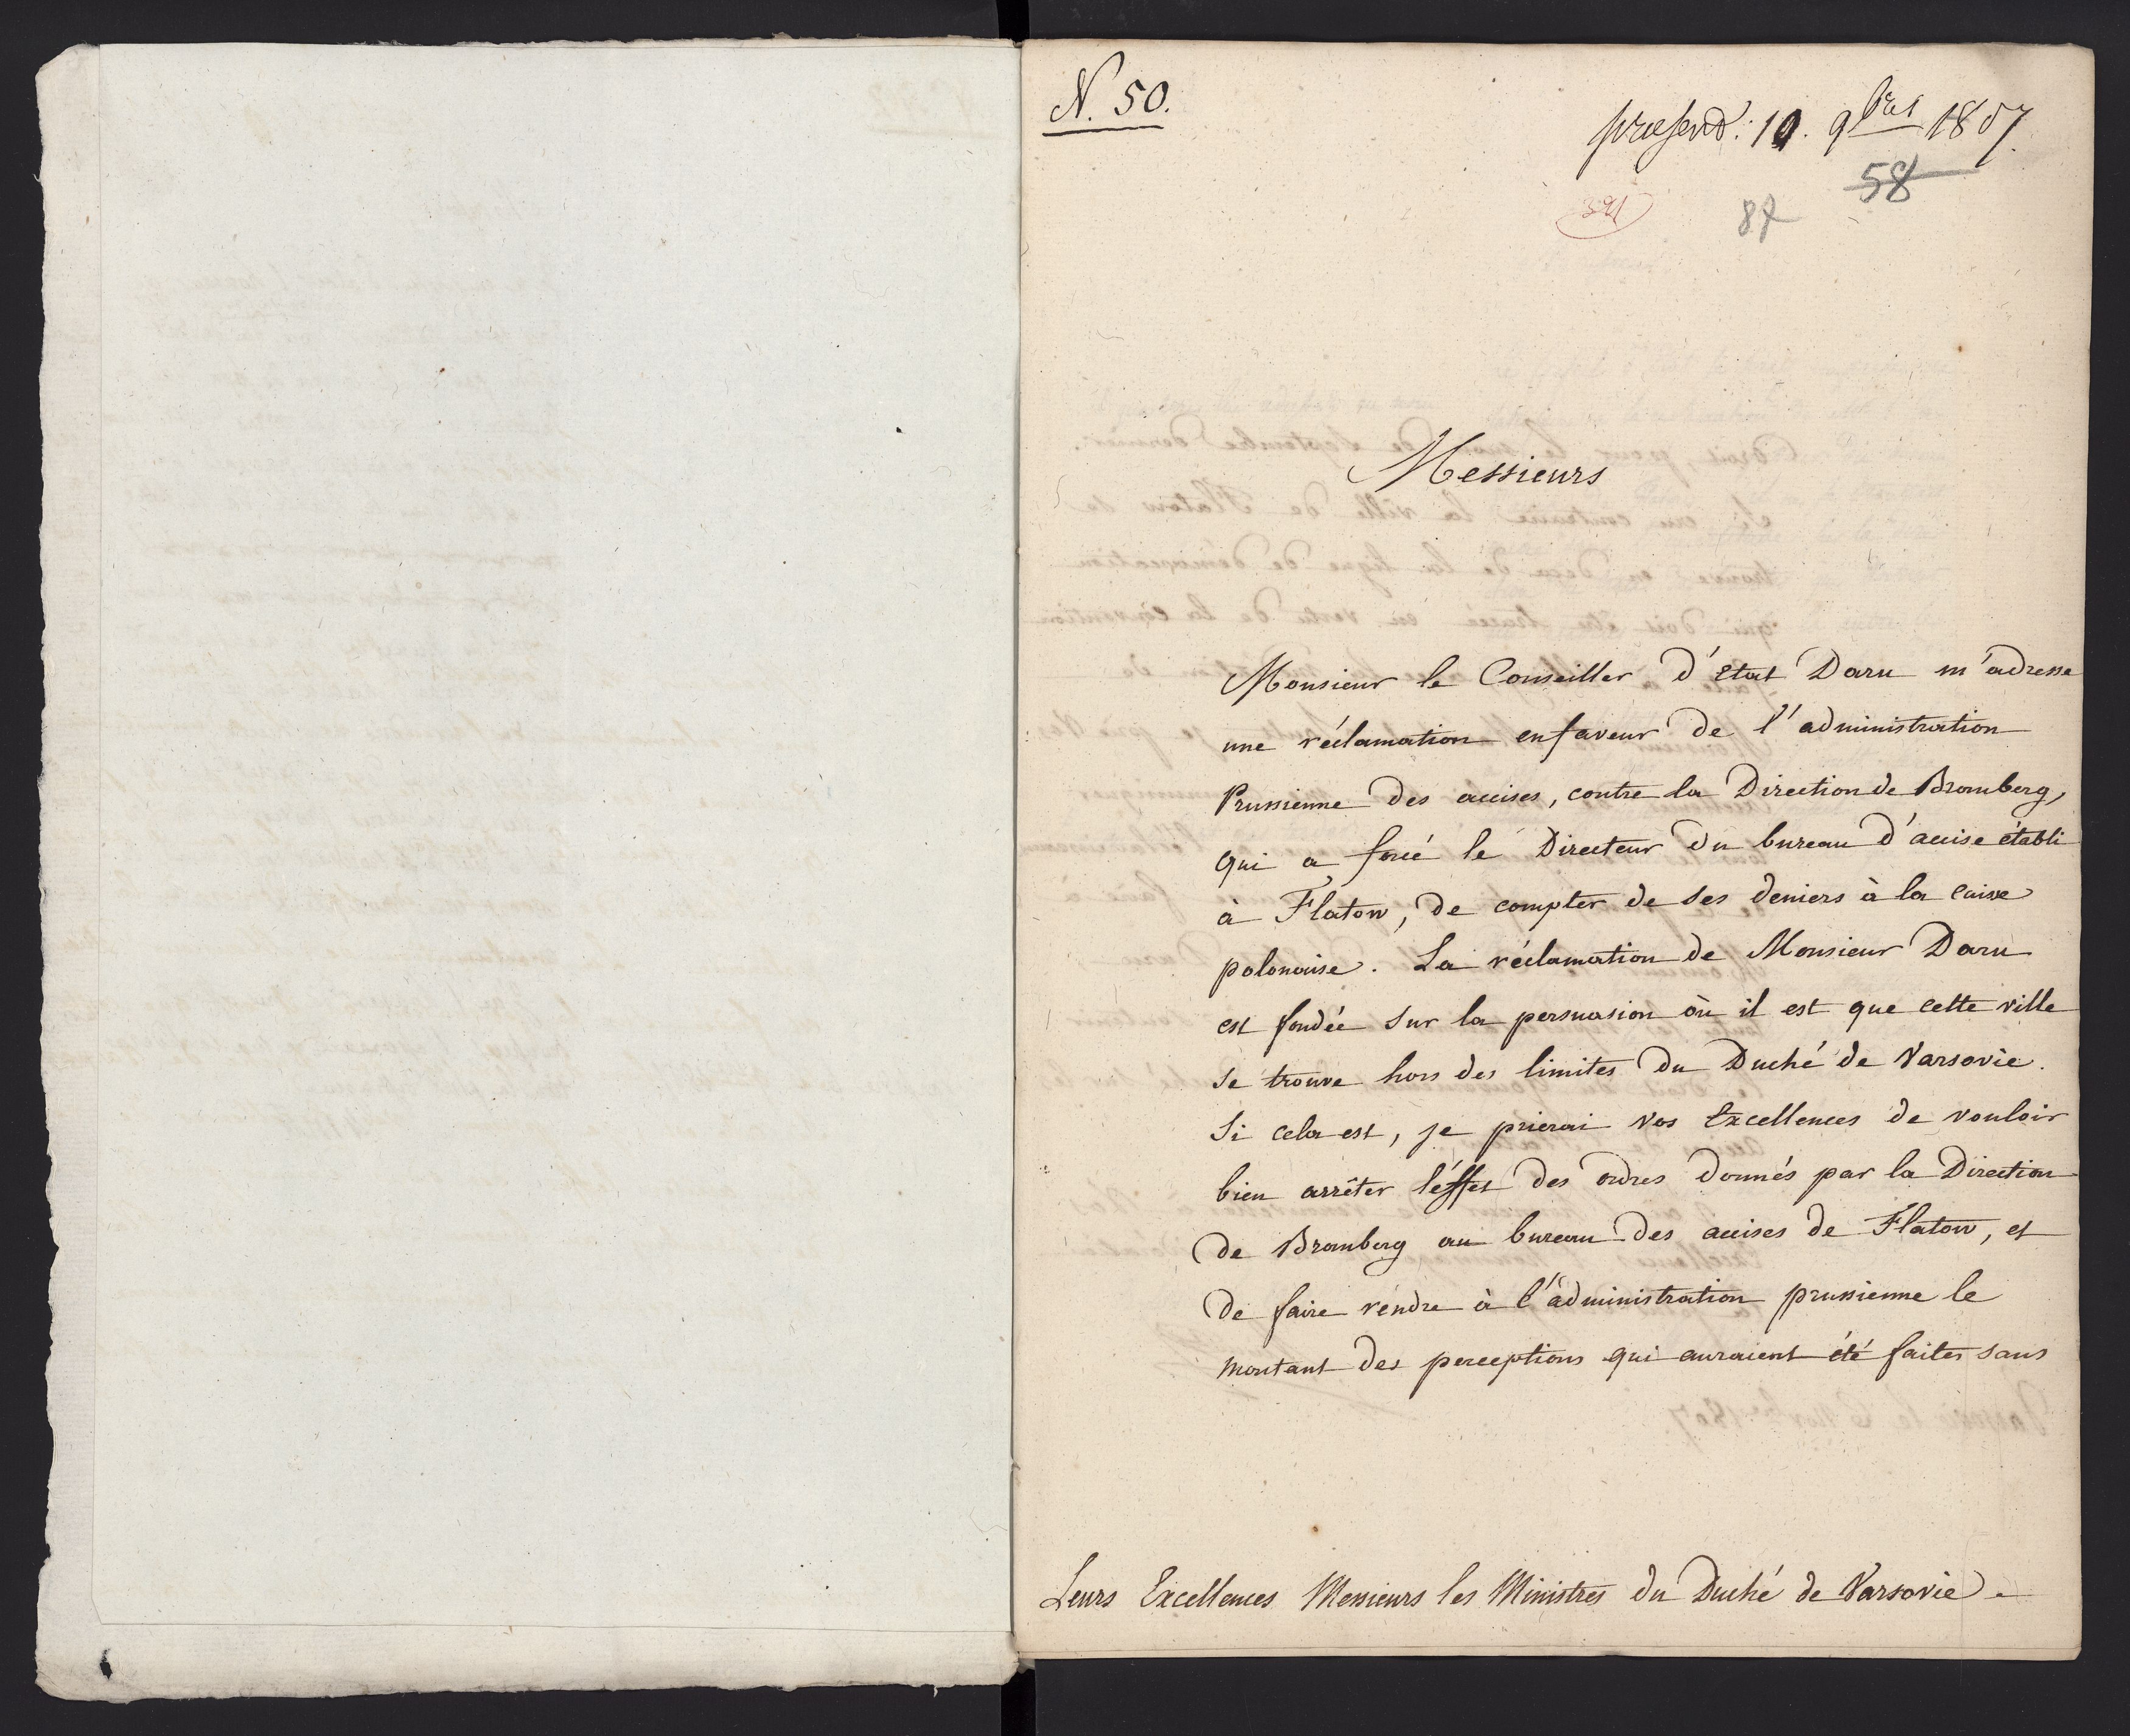 N. 50.
praesent: 10. 9bris 1807.
58
87
391
Messieurs
Monsieur le Conseiller d'Etat Daru m'adresse
une réclamation en faveur de l'administration
Prussienne des accises, contre la Direction de Bromberg,
qui a forcé le Directeur du bureau d'accise établi
à Flatow, de compter de ses deniers à la caisse
polonaise. La réclamation de Monsieur Daru
est fondée sur la persuasion où il est que cette ville
se trouve hors des limites du Duché de Varsovie.
Si cela est, je prierai vos Excellences de vouloir
bien arrêter l'éffet des ordres donnés par la Direction
de Bromberg au bureau des accises de Flatow, et
de faire rendre à l'administration prussienne le
montant des perceptions qui auraient été faites sans
Leurs Excellences Messieurs les Ministres du Duché de Varsovie.